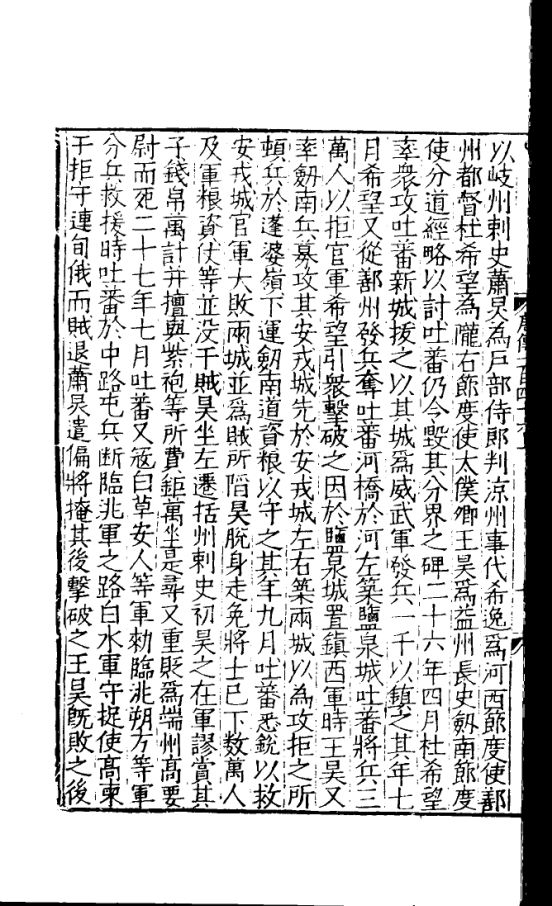 以岐州刺史蕭炅為戶部侍郎判凉州事代希逸爲河西節度使鄯
州都督杜希望為隴右節度使太僕卿王昊爲益州長史劒南節度
使分道經略以討吐蕃仍令毀其分界之碑二十六年四月杜希望
率衆攻吐蕃新城拔之以其城爲威武軍發兵一千以鎮之其年七
月希望又從鄯州發兵奪吐蕃河橋於河左築鹽泉城吐蕃將兵三
萬人以拒官軍希望引衆擊破之因於鹽泉城置鎮西軍時王昊又
率劒南兵募攻其安戎城先於安戎城左右築兩城以為攻拒之所
頓兵於蓬婆嶺下運劒南道資粮以守之其年九月吐蕃悉銳以救
安戎城官軍大敗兩城並爲賊所陷昊脫身走免將士已下数萬人
及軍粮資仗等並没于賊昊坐左遷括州刺史初昊之在軍謬賞其
子錢帛萬計并擅與紫袍等所費鉅萬坐是尋又重貶爲端州髙要
尉而死二十七年七月吐蕃又寇白草安人等軍勑臨洮朔方等軍
分兵救援時吐蕃於中路屯兵断臨洮軍之路白水軍守捉使髙柬
于拒守連旬俄而賊退蕭炅遣偏將掩其後擊破之王昊既敗之後